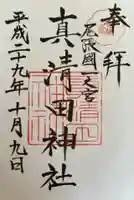 奉拝
尾張國一之宮
真清田神社
平成二十九年十月九日